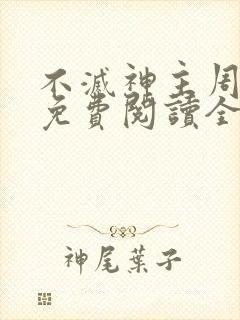 不滅神主周
免費閱讀全
神尾葉子